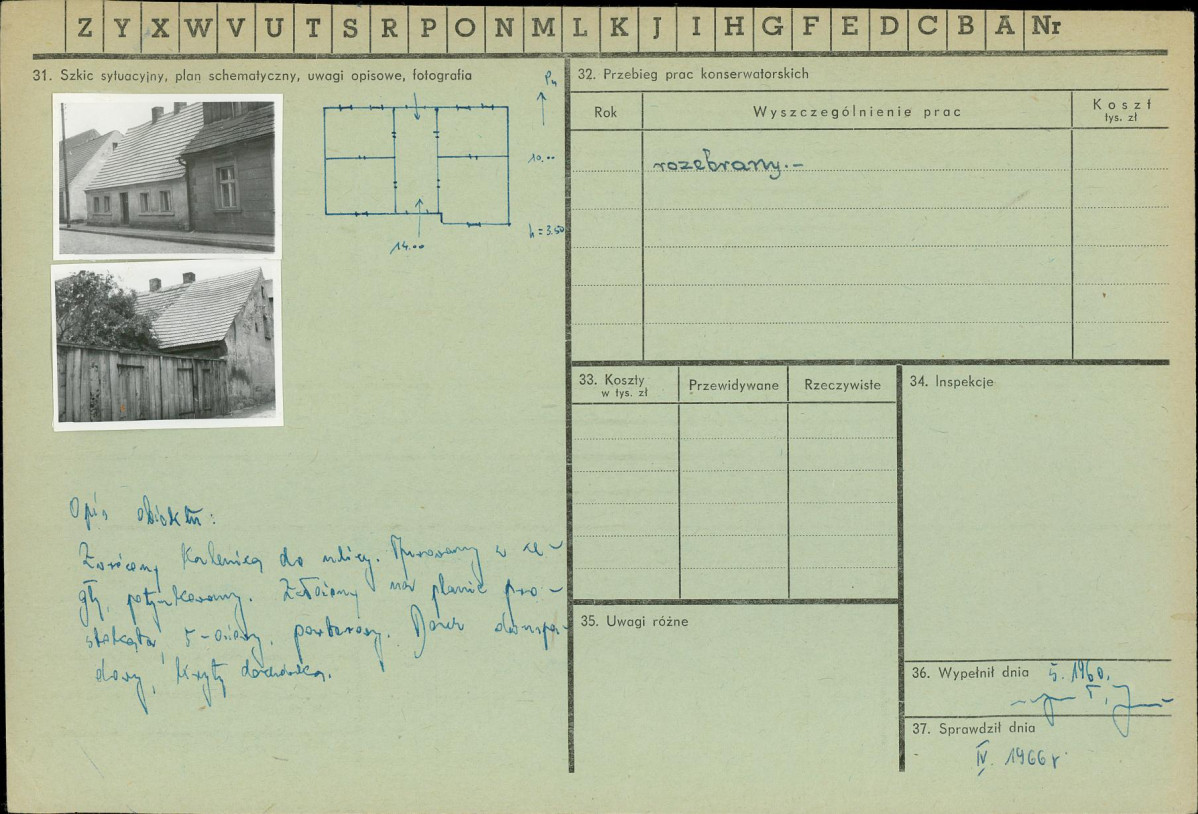 Z Y X W V U T S R P O N M L K J I H G F E D C B A Nr
31. Szkic sytuacyjny, plan schematyczny, uwagi opisowe, fotografia
Pn
10.00
h = 3.50
14.00
Opis obiektu:
Zwrócony kalenicą do ulicy. Murowany z ce-
gły, potynkowany. Złożony na planie pro-
stokąta, 5-osiowy, parterowy. Dach dwuspa-
dowy, kryty dachówką.
32. Przebieg prac konserwatorskich
Rok
Wyszczególnienie prac
Koszt
tys. zł
rozebrany.-
33. Koszty
w tys. zł
Przewidywane
Rzeczywiste
34. Inspekcje
35. Uwagi różne
36. Wypełnił dnia 5.1960.
37. Sprawdził dnia
IV. 1966 r